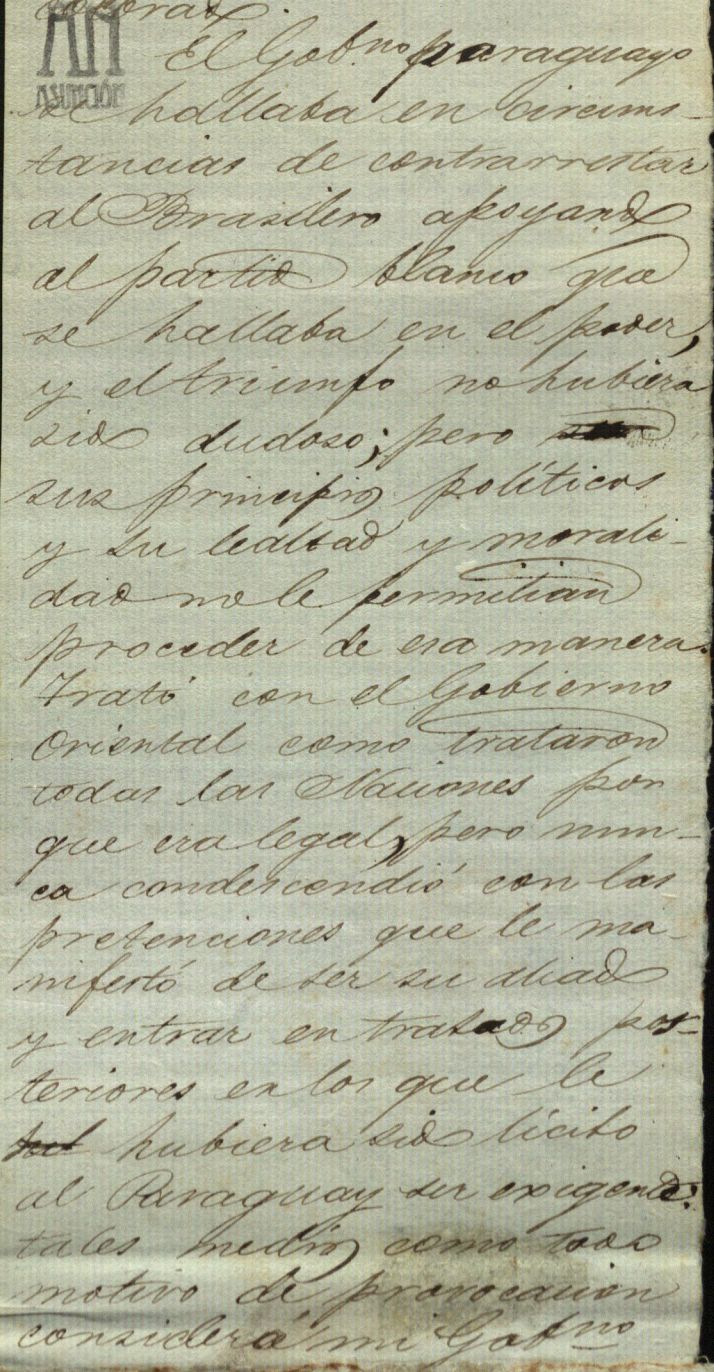 El Gob.no paraguayo
se hallaba en circuns-
tancias de contrarrestar
al Brasilero apoyando
al partido blanco que
se hallaba en el poder,
y el triumfo no hubiera
sido dudoso; pero
sus principios políticos
y su lealtad y morali-
dad no le permitian
proceder de esa manera.
Trató con el Gobierno
Oriental como trataron
todas las Naciones por
que era legal, pero nun-
ca condescendió con las
pretenciones que le ma-
nifestó de ser su aliado
y entrar en tratados pos-
teriores en los que le
hubiera sido lícito
al Paraguay ser exigente:
tales medios como todo
motivo de provocacion
considera mi Gobno
AN
ASUNCIÓN